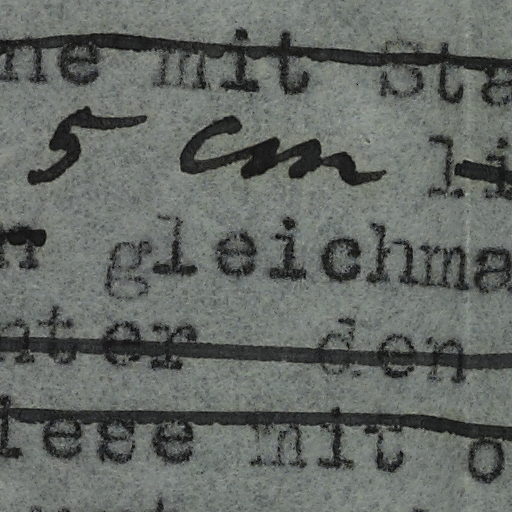 ne mit Sta
5 cm li
n gleichma
nter den
iese mit o